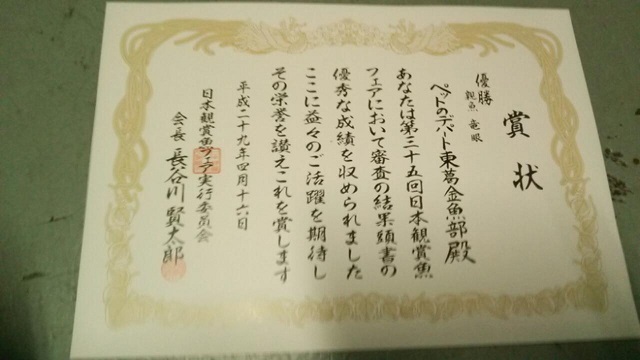 賞状
優勝
親魚 竜眼
ペットのデパート東葛金魚部殿
あなたは第三十五回日本観賞魚
フェアにおいて審査の結果頭書の
優秀な成績を収められました
ここに益々のご活躍を期待し
その栄誉を讃えこれを賞します
平成二十九年四月十六日
日本観賞魚フェア実行委員会
会長 長谷川賢太郎